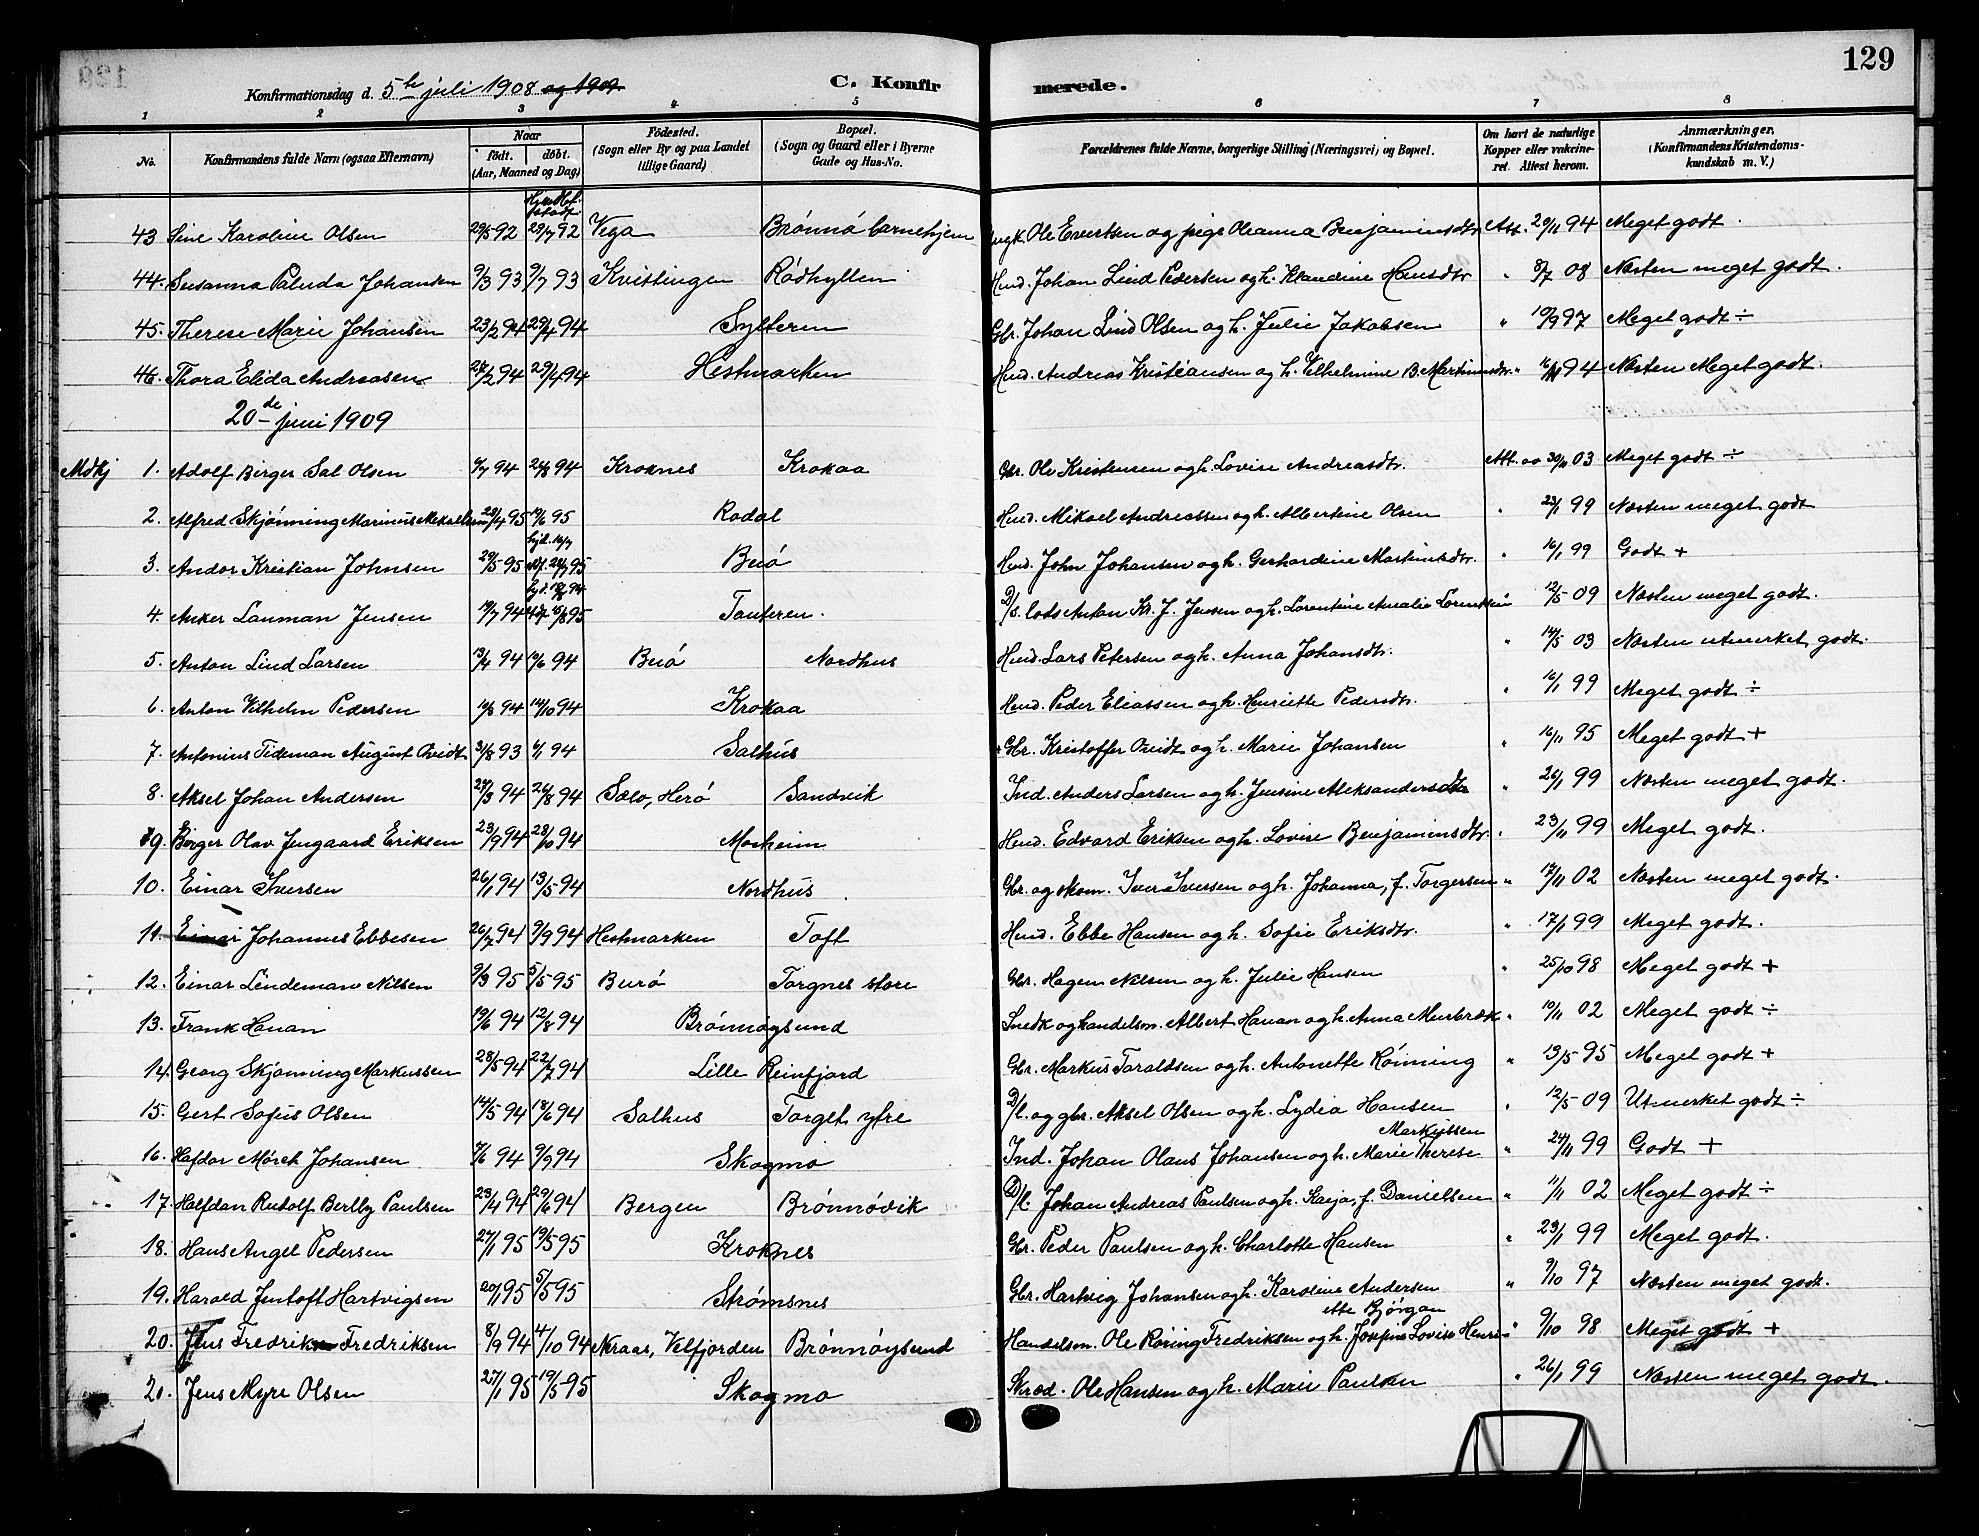 129
Konfirmationsdag d. 5te juli 1908 og 1909. C. Konfirmerede.
1 2 3 4 5 6 7 8
No. Konfirmandens fulde Navn (ogsaa Efternavn) Naar født. døbt. (Aar, Maaned og Dag) Födested. (Sogn eller By og paa Landet tillige Gaard) Bopæl. (Sogn og Gaard eller i Byerne Gade og Hus-No. Forældrenes fulde Navne, borgerlige Stilling (Næringsvei) og Bopæl. Om havt de naturlige Kopper eller vakcineret. Attest herom. Anmærkninger. (Konfirmandens Kristendomskundskab m. V.)
43 Sine Karoline Olsen 29/5 92 29/7 92 Vega Brønnø barnehjem Ungk. Ole Evertsen og pige Oleanna Benjaminsdtr Att. 20/11 94 Meget godt.
44. Susanna Paluda Johansen 9/3 93 9/7 93 Kvistingen Rødhyllen Hmd. Johan Lind Pedersen og h. Klaudine Hansdtr " 8/7 08 Næsten meget godt.
45. Therese Marie Johansen 23/2 94 29/4 94 Sylteren Gbr. Johan Lind Olsen og h. Julie Jakobsen " 10/9 97 Meget godt ÷
46. Thora Elida Andreasen 27/2 94 29/4 94 Hestmarken Hmd. Andreas Kristiansen og h. Vilhelmine B. Martinusdtr. " 16/11 94 Næsten Meget godt.
20de juni 1909
Mdkj 1. Adolf Birger Sal Olsen 4/7 94 26/8 94 Kroknes Krokaa Gbr. Ole Kristensen og h. Lovise Andreasdtr. Att. 30/11 03 Meget godt ÷
2. Alfred Skjønning Marinus Mikaelsen 28/4 95 19/6 95 Rodal Hmd. Mikael Andreassen og h. Albertine Olsen " 23/1 99 Næsten meget godt
3. Andor Kristian Johnsen 29/5 95 hjd. 16/7 95 Buø Hmd. John Johansen og h. Gerhardine Martinusdtr. " 16/1 99 Godt +
4. Anker Lauman Jensen 19/7 94 Tauteren. D/s. lods Antan Kr. J. Jensen og h. Lorentine Amalie Lorentsen " 12/5 09 Næsten meget godt.
5. Anton Lind Larsen 13/4 94 10/6 94 Buø Nordhus Hmd. Lars Petersen og h. Anna Johansdtr. " 14/5 03 Næsten utmerket godt.
6. Anton Vilhelm Pedersen 10/8 94 14/10 94 Krokaa Hmd. Peder Eliassen og h. Henriette Pedersdtr. " 16/1 99 Meget godt ÷
7. Antonius Tideman August Qvidt 31/8 93 4/1 94 Salhus Gbr. Kristoffer Qvidt og h. Marie Johansen " 16/11 95 Meget godt +
8. Aksel Johan Andersen 27/3 94 26/8 94 Sølo, Herø Sandvik Ind. Anders Larsen og h. Jensine Aleksandersdtr " 26/1 99 Næsten meget godt.
9. Birger Olav Jengaard Eriksen 23/9 94 28/10 94 Mosheim Hmd. Edvard Eriksen og h. Lovise Benjaminsdtr. " 23/11 99 Meget godt.
10. Einar Iversen 26/1 94 13/5 94 Nordhus. Gbr. og skom. Iver Iversen og h. Johanna, f. Torgersen " 17/11 02 Næsten meget godt.
11. Einar Johannes Ebbesen 26/7 94 9/9 94 Hestmarken Toft Hmd. Ebbe Hansen og h. Sofie Eriksdtr. " 17/1 99 Meget godt.
12. Einar Lindeman Nilsen 9/3 95 5/5 95 Burø Torgnes store Gbr. Hagen Nilsen og h. Julie Hansen " 25/10 98 Meget godt +
13. Frank Hanan 19/6 94 12/8 94 Brønnøysund Snedk og handelsm. Albert Hanan og h. Anna Murbræk " 10/11 02 Meget godt ÷
14. Georg Skjønning Markussen 28/5 94 22/7 94 Lille Reinfjord Gbr. Markus Taraldsen og h. Antonette Rønning " 13/5 95 Meget godt +
15. Gert Sofus Olsen 14/5 94 18/6 94 Salhus Torget yfre D/l. og gbr. Aksel Olsen og h. Lydia Hansen " 12/5 09 Utmerket godt ÷
Markussen
16. Hafdor Mørch Johansen 7/6 94 9/9 94 Skogmo Ind. Johan Olaus Johansen og h. Marie Therese " 24/11 99 Godt +
17. Halfdan Rudolf Berlby Paulsen 23/4 94 29/6 94 Bergen Brønnøvik D/l. Johan Andreas Paulsen og h. Kaija, f. Danielsen " 11/11 02 Meget godt ÷
18. Hans Angel Pedersen 27/1 95 19/5 95 Kroknes Gbr. Peder Paulsen og h. Charlotte Hansen " 23/1 99 Meget godt.
19. Harald Jentoft Hartvigsen 20/1 95 5/5 95 Strømsnes Gbr. Hartvig Johansen og h. Karoline Andersen " 9/10 97 Næsten meget godt.
ette Bjørgan
20. Jens Fredrik Fredriksen 8/9 94 4/10 94 Nkraas, Velfjorden Brønnøysund Handelsm. Ole Røring Fredriksen og h. Josefine Lovise Henri- " 9/10 98 Meget godt +
21. Jens Myre Olsen 27/1 95 19/5 95 Skogmo Skræd. Ole Hansen og h. Marie Paulsen " 26/1 99 Næsten meget godt.